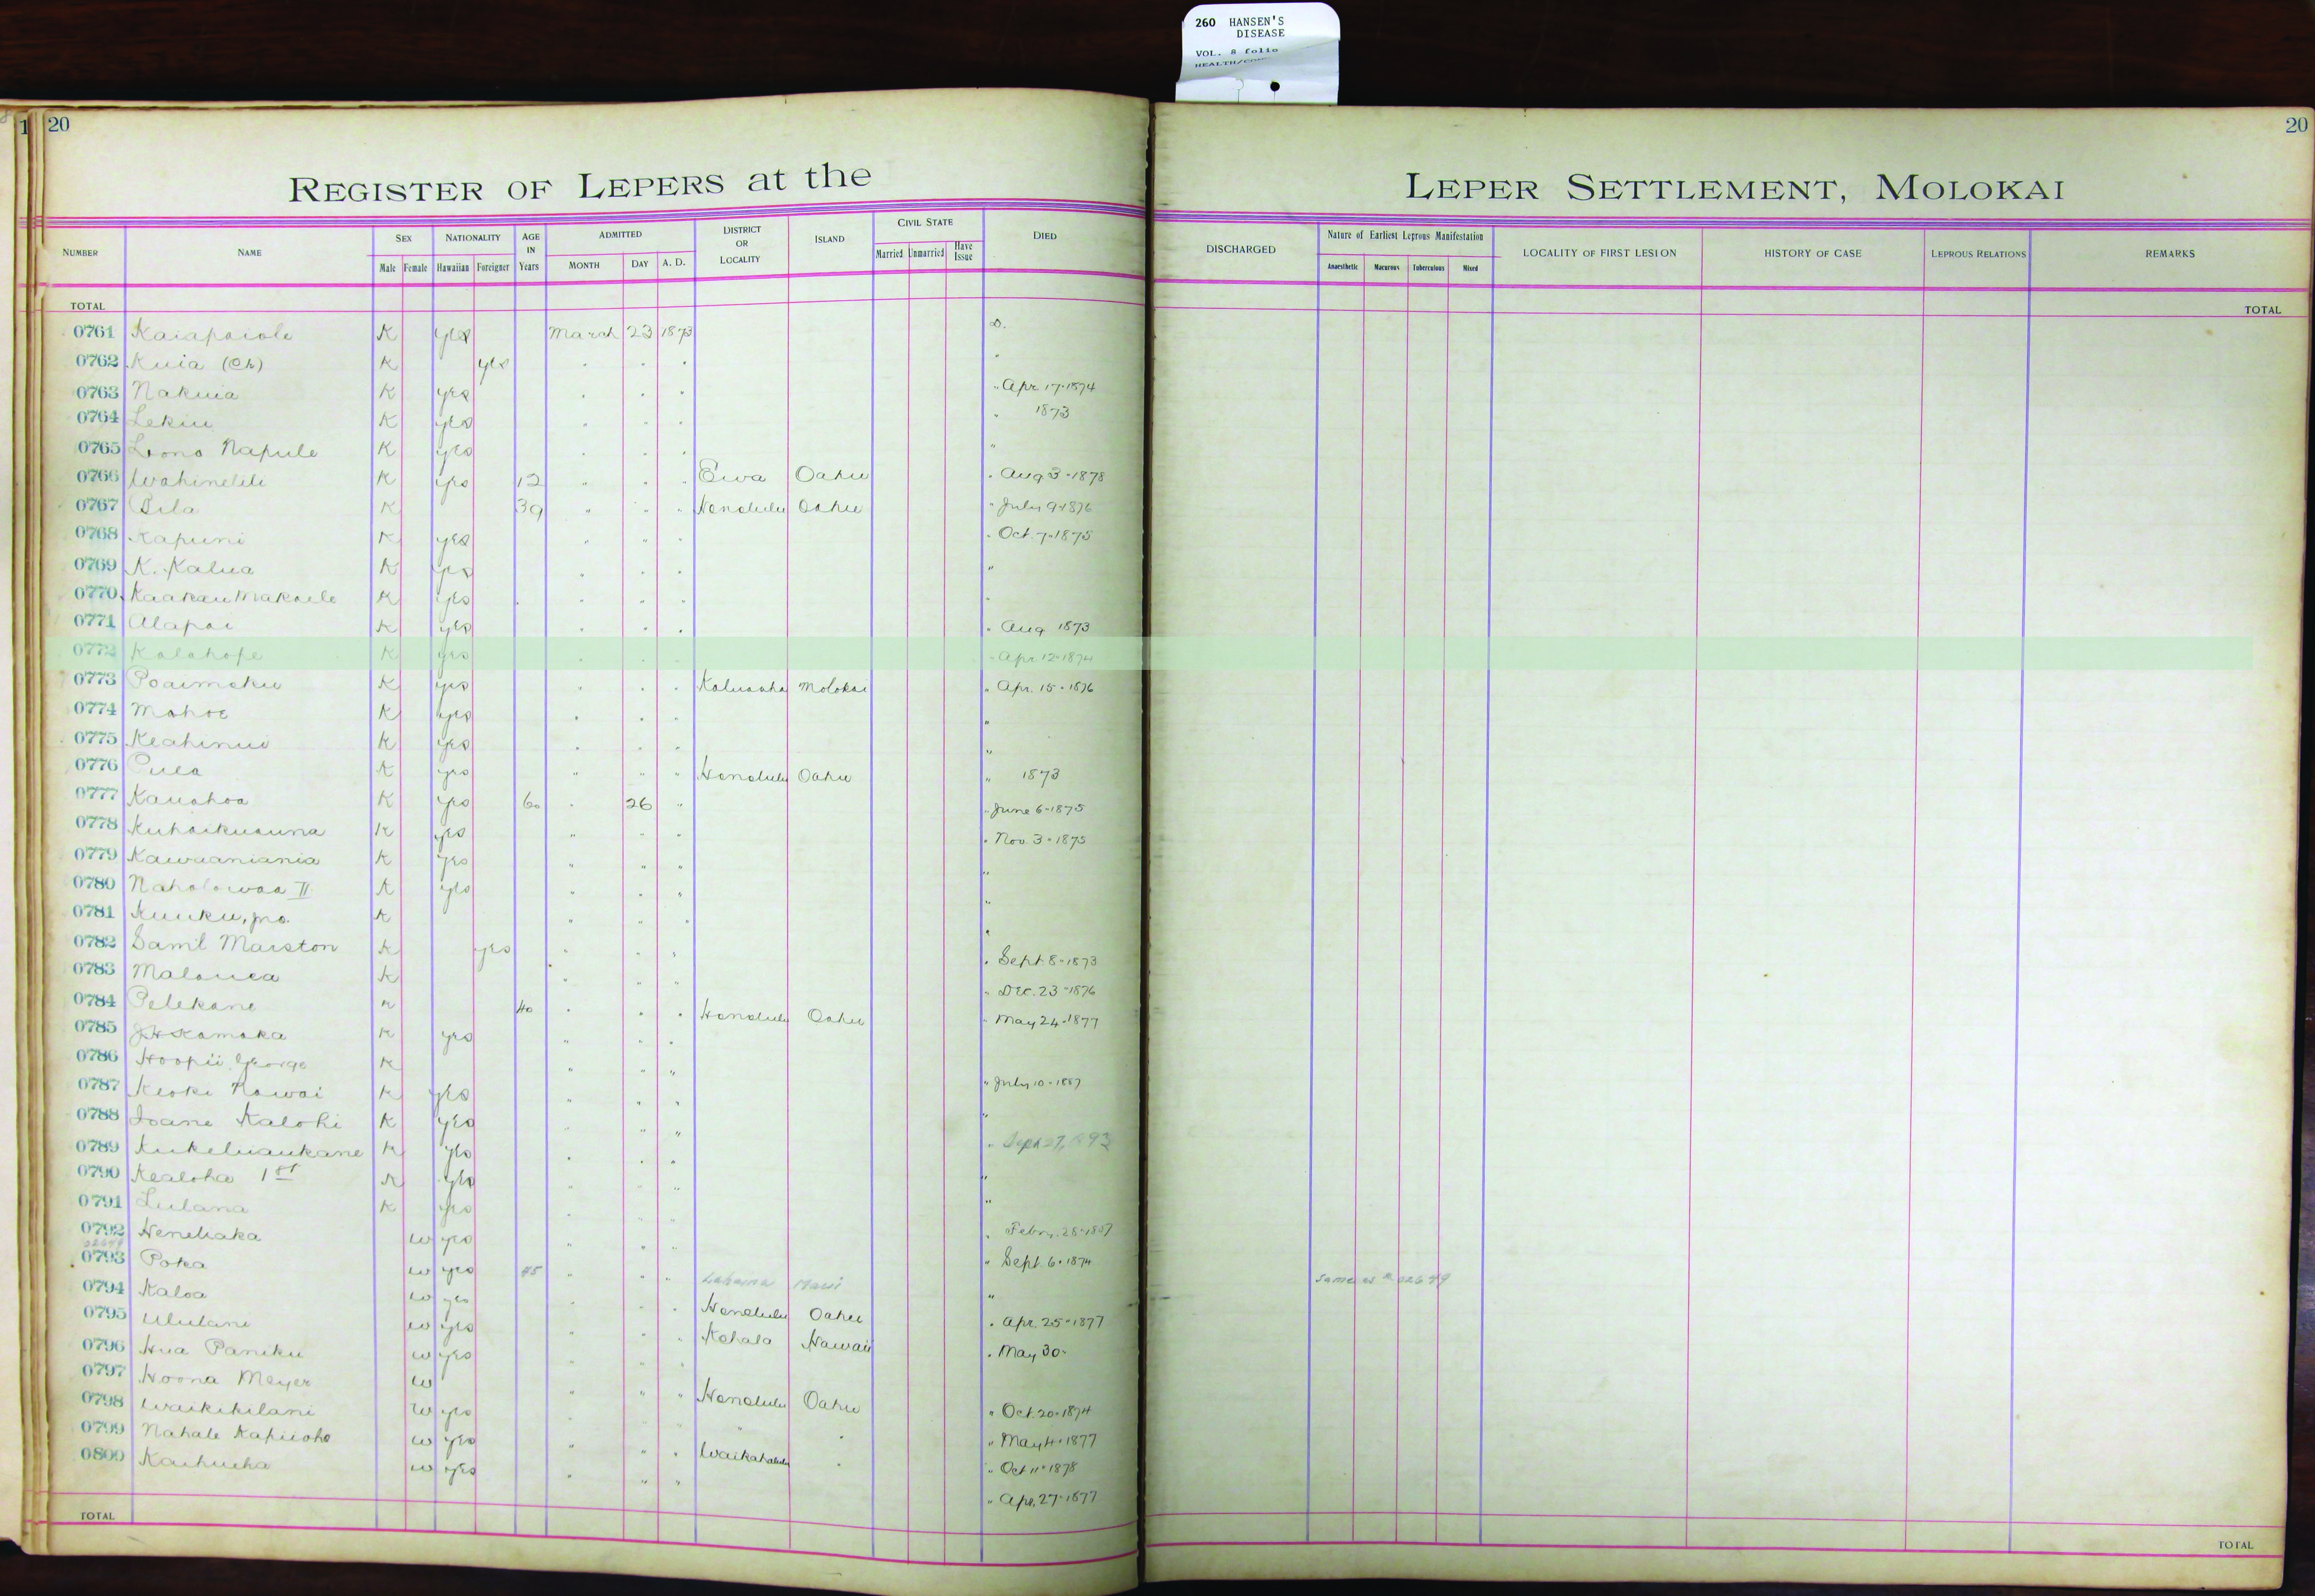 260 HANSEN'S
DISEASE
VOL. 8 folio
20
20
REGISTER OF LEPERS at the LEPER SETTLEMENT, MOLOKAI
NUMBER NAME SEX Male Female NATIONALITY Hawaiian Foreigner AGE IN Years ADMITTED MONTH DAY A. D. DISTRICT OR LOCALITY ISLAND CIVIL STATE Married Unmarried Have Issue DIED DISCHARGED Nature of Earliest Leprous Manifestation Anaesthetic Macurous Tuberculous Mixed LOCALITY OF FIRST LESION HISTORY OF CASE LEPROUS RELATIONS REMARKS
TOTAL TOTAL
0761 Kaiapaiole K yes March 23 1873 D.
0762 Kuia (Ch) K yes " " " "
0763 Nakuia K yes " " " " Apr 17-1874
0764 Lekiu K yes " " " " 1873
0765 Lono Napule K yes " " " "
0766 Wahinelili K yes 12 " " " Ewa Oahu " Aug 3-1878
0767 Pila K 39 " " " Honolulu Oahu " July 9-1876
0768 Kapuni K yes " " " " Oct. 7-1875
0769 K. Kalua K yes " " " "
0770 Kaakau Makaele K yes " " " "
0771 Alapai K yes " " " " Aug 1873
0772 Kalahope K yes " " " " Apr 12-1874
0773 Poaimoku K yes " " " Kaluaaha Molokai " Apr. 15-1876
0774 Mahoe K yes " " " "
0775 Keahinui K yes " " " "
0776 Puea K yes " " " Honolulu Oahu " 1873
0777 Kauahoa K yes 60 " 26 " " June 6-1875
0778 Kuhaikuauna K yes " " " " Nov. 3-1875
0779 Kawaaniania K yes " " " "
0780 Naholowaa II K yes " " " "
0781 Kuuku, jno. K " " " "
0782 Saml Marston K yes " " " " Sept 8-1873
0783 Malouea K " " " " Dec. 23-1876
0784 Pelekane K 40 " " " Honolulu Oahu " May 24-1877
0785 J.H. Kamaka K yes " " "
0786 Hoopii George K " " " " July 10-1887
0787 Keoki Nawai K yes " " " "
0788 Ioane Kalohi K yes " " " " Sept 27, 1893
0789 Kukeluaukane K yes " " " "
0790 Kealoha 1st K yes " " " "
0791 Lulana K yes " " " " Febr. 28-1887
0792 Heneliaka W yes " " " " Sept. 6-1874
02649
0793 Poka W yes 45 " " " Lahaina Maui " Same as # 02649
0794 Kaloa W yes " " " Honolulu Oahu " Apr. 25-1877
0795 Ululani W yes " " " Kohala Hawaii " May 30-
0796 Hua Paniku W yes " " "
0797 Hoona Meyer W " " " Honolulu Oahu " Oct. 20-1874
0798 Waikikilani W yes " " " " " " May 4-1877
0799 Nahale Kapuoho W yes " " " Waikahalulu " " Oct 11-1878
0800 Kaihueha W yes " " " " Apr. 27-1877
TOTAL TOTAL